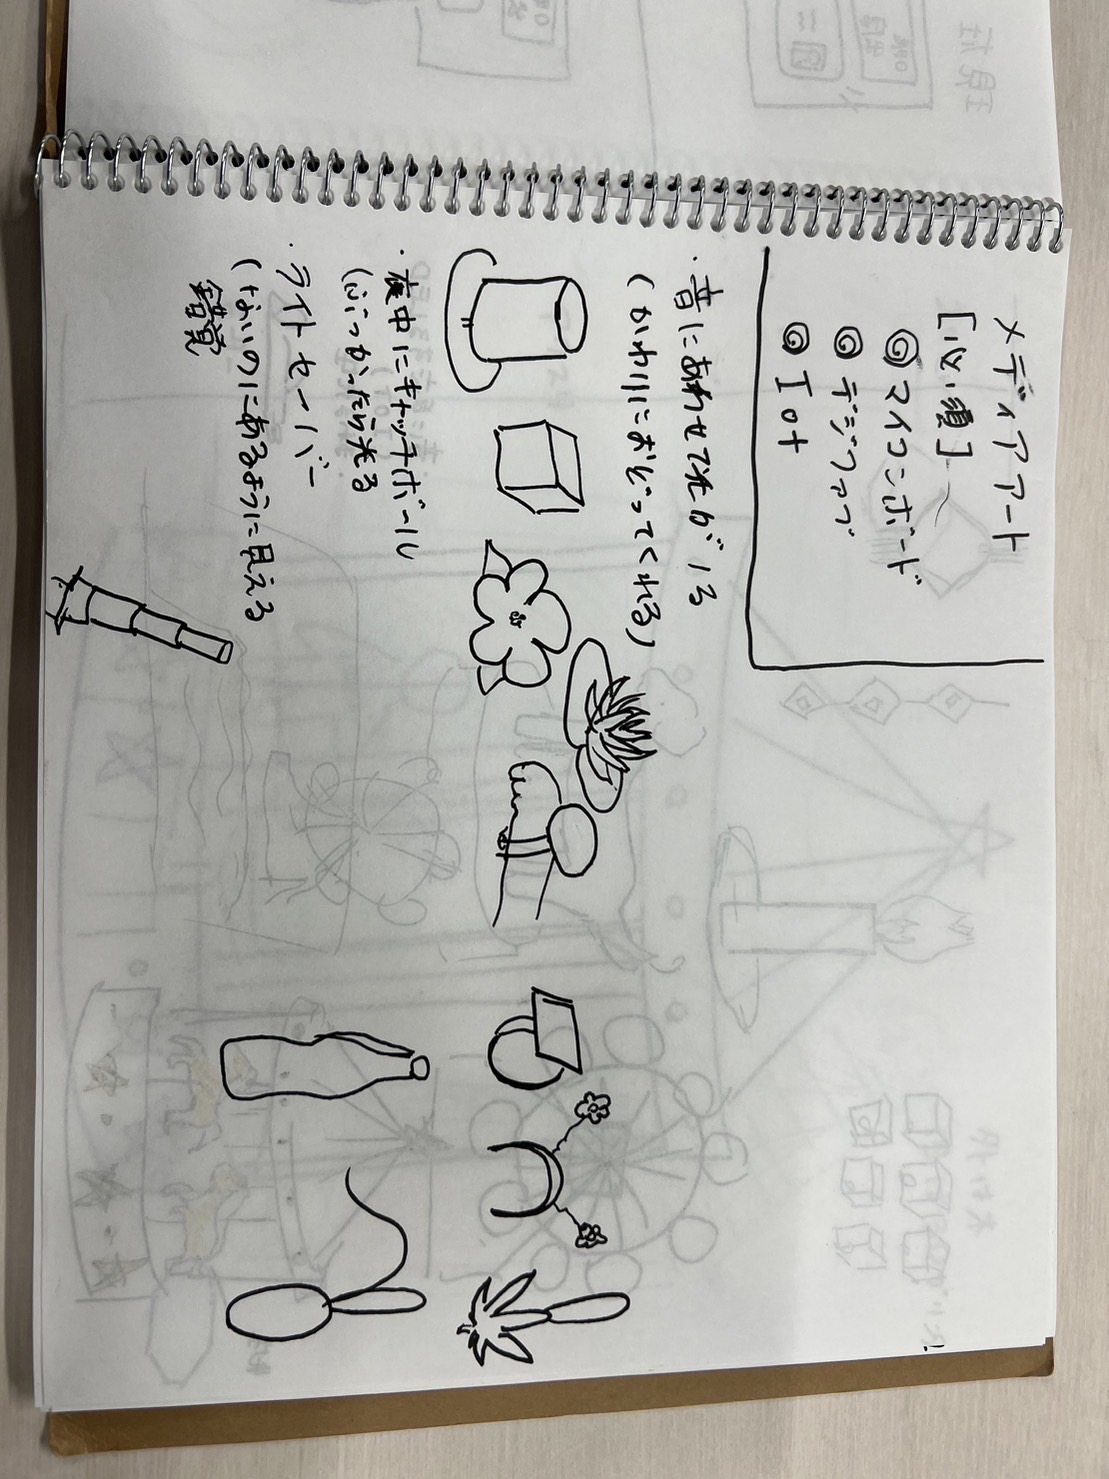 メディアアート
[必須]
◎マイコンボード
◎デジファブ
◎Iot
・音にあわせて光がﾞ1る
(かわりにおどってくれる)
・夜中にキャッチボール
(ぶつかったら光る
・ライトセーバー
(ないのにあるように見える
錯覚